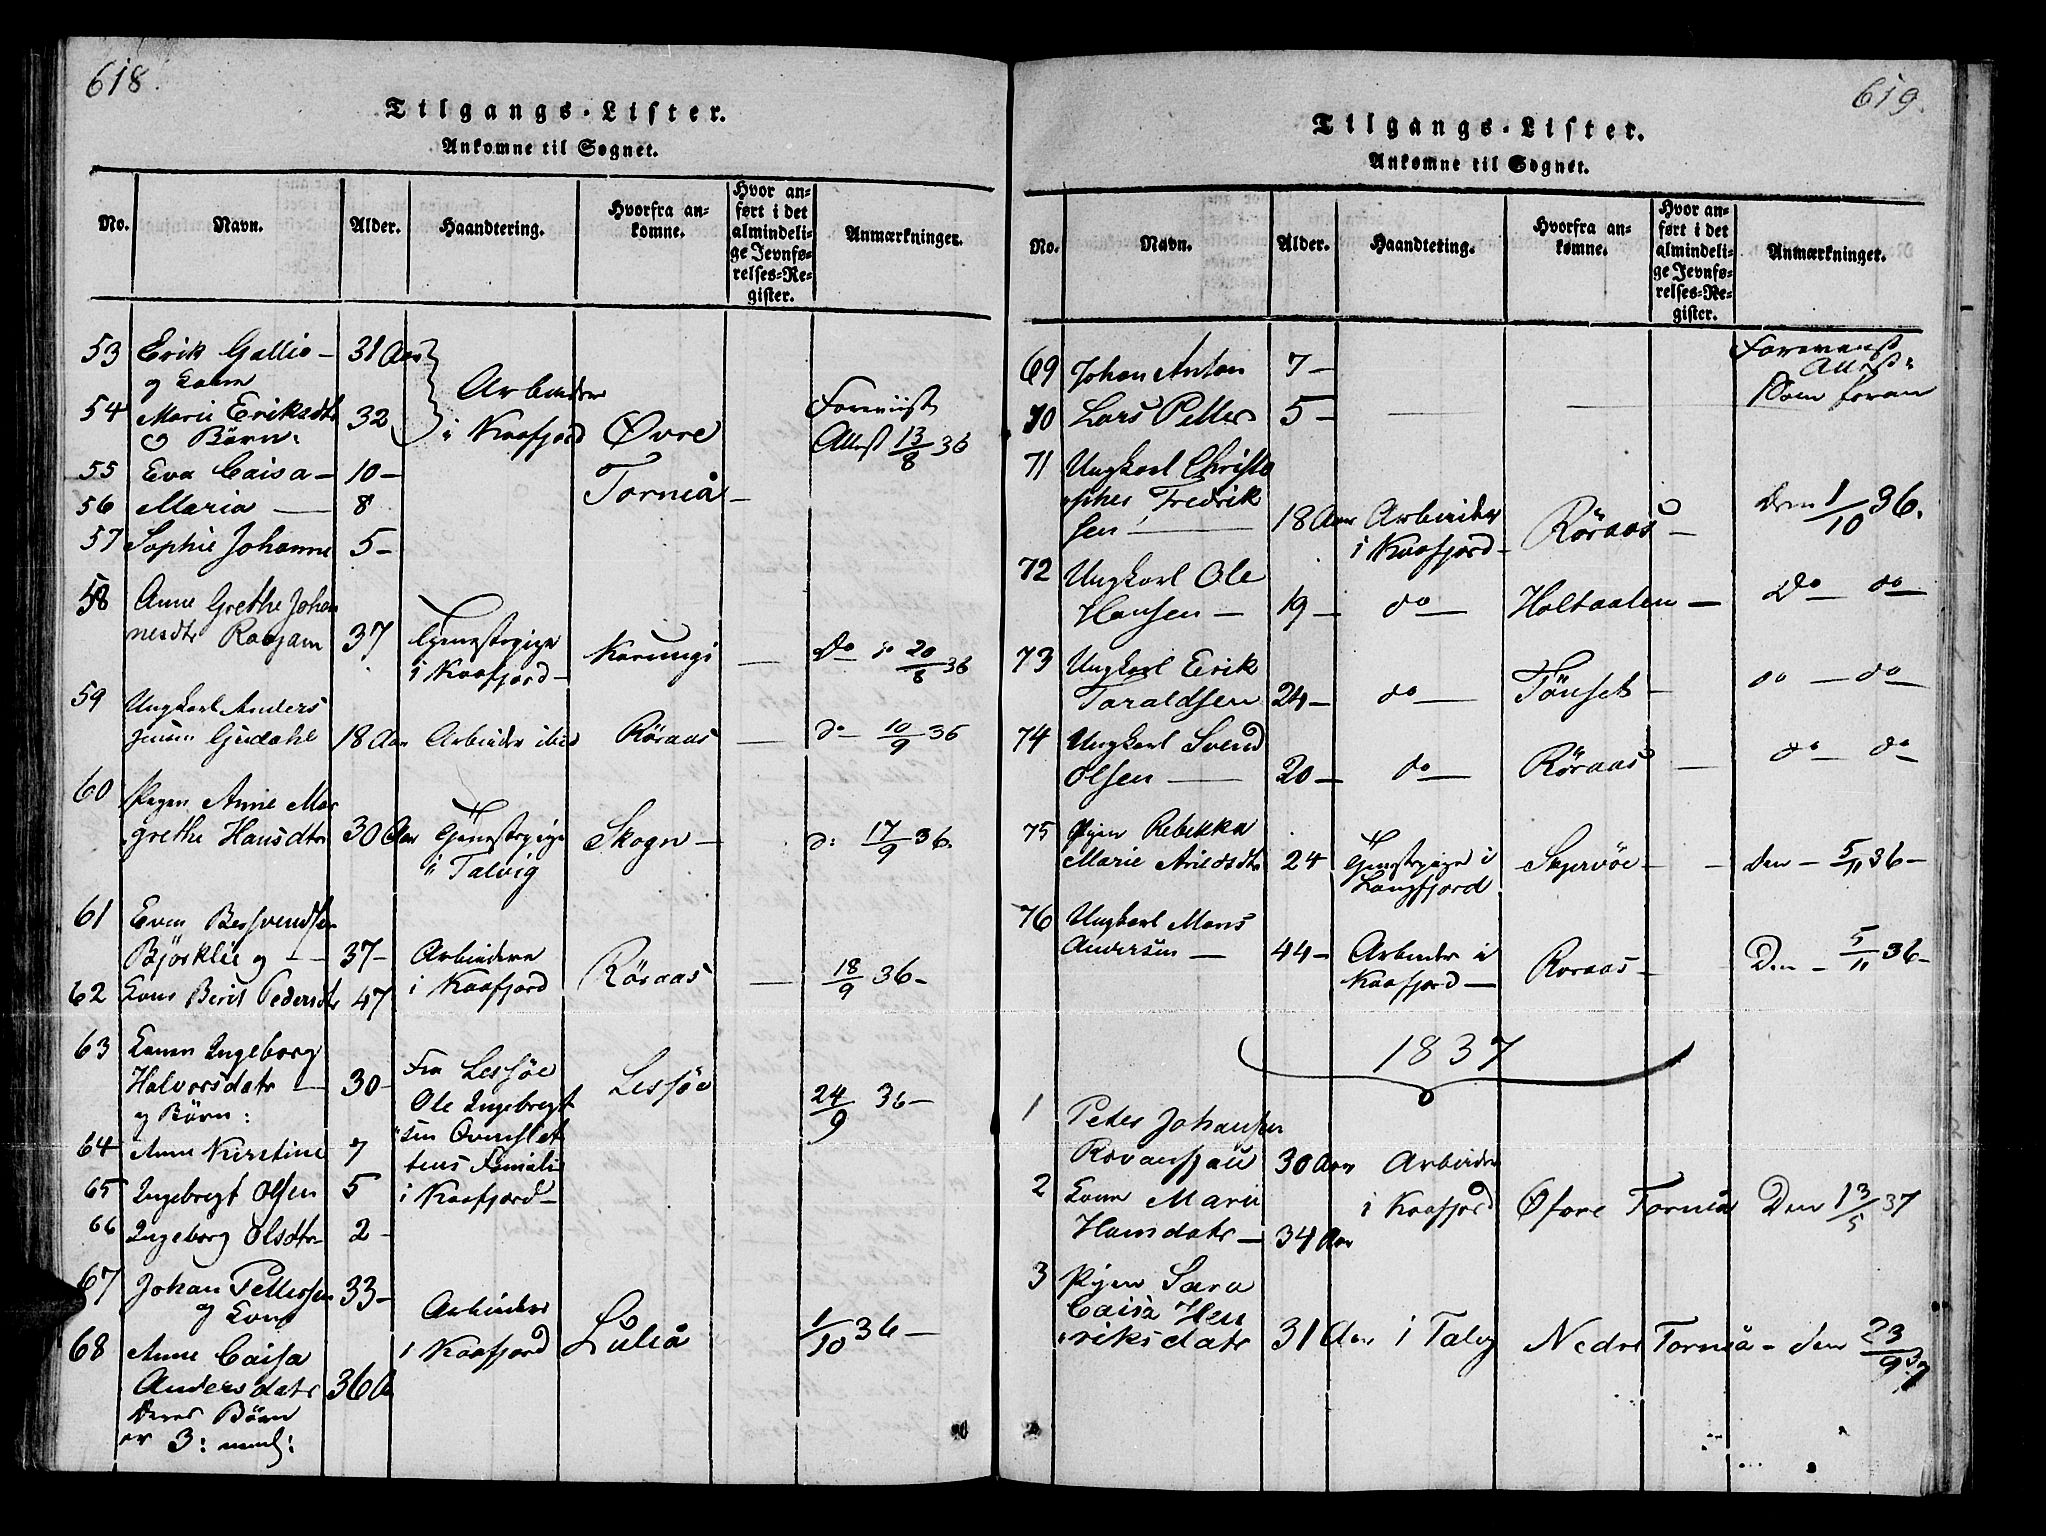 618.
Tilgangs-Lister.
Ankomne til Sognet.
No. Navn. Alder. Haandtering. Hvorfra ankomne. Hvor anført i det almindelige Jevnførelses-Register. Anmærkninger.
53 Erik Gallio — 31 Aar
og Kone
54 Marie Eriksdtr 32 Arbeider i Kaafjord Øvre Torneå — Foreviist Attest 13/8 36
og Børn:
55 Eva Caisa — 10 —
56 Maria — 8
57 Sophie Johanne 5 —
58 Anne Grethe Johan
nesdtr 37 Tjenestepige i Kaafjord — Karungi — do 20/8 36
59 Ungkarl Anders
18 Aar Arbeider ibid Röraas — do — 10/9 36
60 Pigen Anne Mar
grethe Hansdtr 30 Aar Tjenestepige i Talvig Skogn — d: 17/9 36.
61 Even
Björklie og — 37 — Arbeidere i Kaafjord Röraas — 18/9 36 —
62 Kone Berit Pedersdtr 47
63 Konen Ingeborg
Halvorsdatr — 30 — Fra Lessöe Ole Ingebregt
sen Familie i Kaafjord — Lessöe 24/9 36 —
og Börn:
64 Anne Kirstine 7
65 Ingebregt Olsen 5
66 Ingeborg Olsdtr 2 —
67 Johan Pettersen 33 —
og Kone
Arbeider i Kaafjord Luleå 1/10 36 —
68 Anne Caisa
Andersdatr 36 A
Deres Börn
er 3: neml:
619.
Tilgangs-Lister.
Ankomne til Sognet.
No. Navn. Alder. Haandtering. Hvorfra ankomne. Hvor anført i det almindelige Jevnførelses-Register. Anmærkninger.
69 Johan Anton 7 — Foreviist Attest
70 Lars Petter 5 — — — Som foran
71 Ungkarl Christo
pher Fredrik
sen — 18 Aar Arbeider i Kaafjord — Röraas — Den 1/10 36.
72 Ungkarl Ole
Hansen — 19 — do — Holtaalen — Do — do
73 Ungkarl Erik
Taraldsen 24 — do — Tönset — do — do
74 Ungkarl Svend
Olsen — 20 — do — Röraas — do — do
75 Pigen Rebekka
Marie 24 Tjenestepige i Langfjord — — Den — 5/11 36 —
76 Ungkarl Mons
Andersen — 44 — Arbeider i Kaafjord — Roraas — Den — 5/11 36 —
1837
1 Peder Johansen
30 Aar Arbeider
2 Kone Marie i Kaafjord Øfvre Torneå Den 13/5 37
Hansdatr — 34 Aar
3 Pigen Sara
Caisa Hen
riksdatr 31 Aar i Talvig Nedre Torneå — den 23/9 37